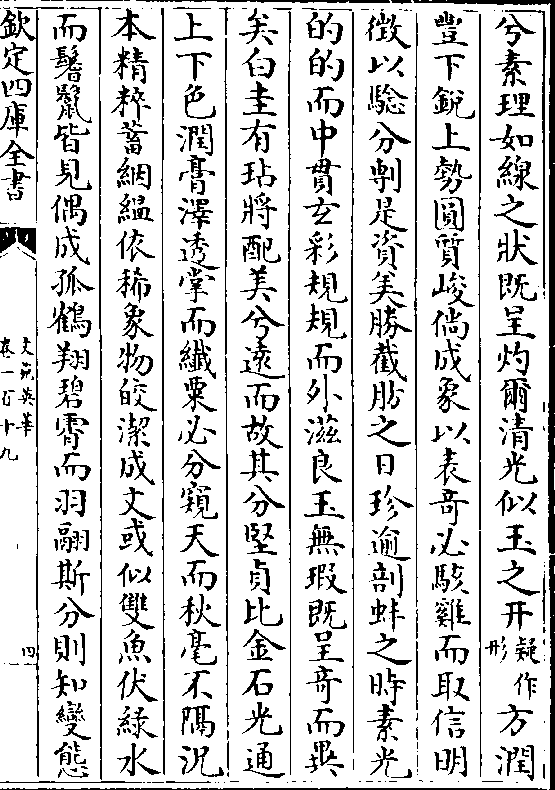 兮素理如線之狀既呈灼爾清光似玉之開疑作形方潤
豐下銳上勢圓質峻倘成象以表竒必駭雞而取信明
徴以驗分剸是資美勝截肪之日珍逾剖蚌之時素光
的的而中貫玄彩規規而外滋良玉無瑕既呈竒而異
矣白圭有玷將配美兮遠而故其分堅貞比金石光通
上下色潤膏澤透掌而纎粟必分窺天而秋毫不隔況
本精粹蓄絪緼依稀象物皎潔成文或似雙魚伏緑水
而鬐鬛皆見偶成孤鶴翔碧霄而羽翮斯分則知變態
欽定四庫全書
文苑英華
卷一百十九
四